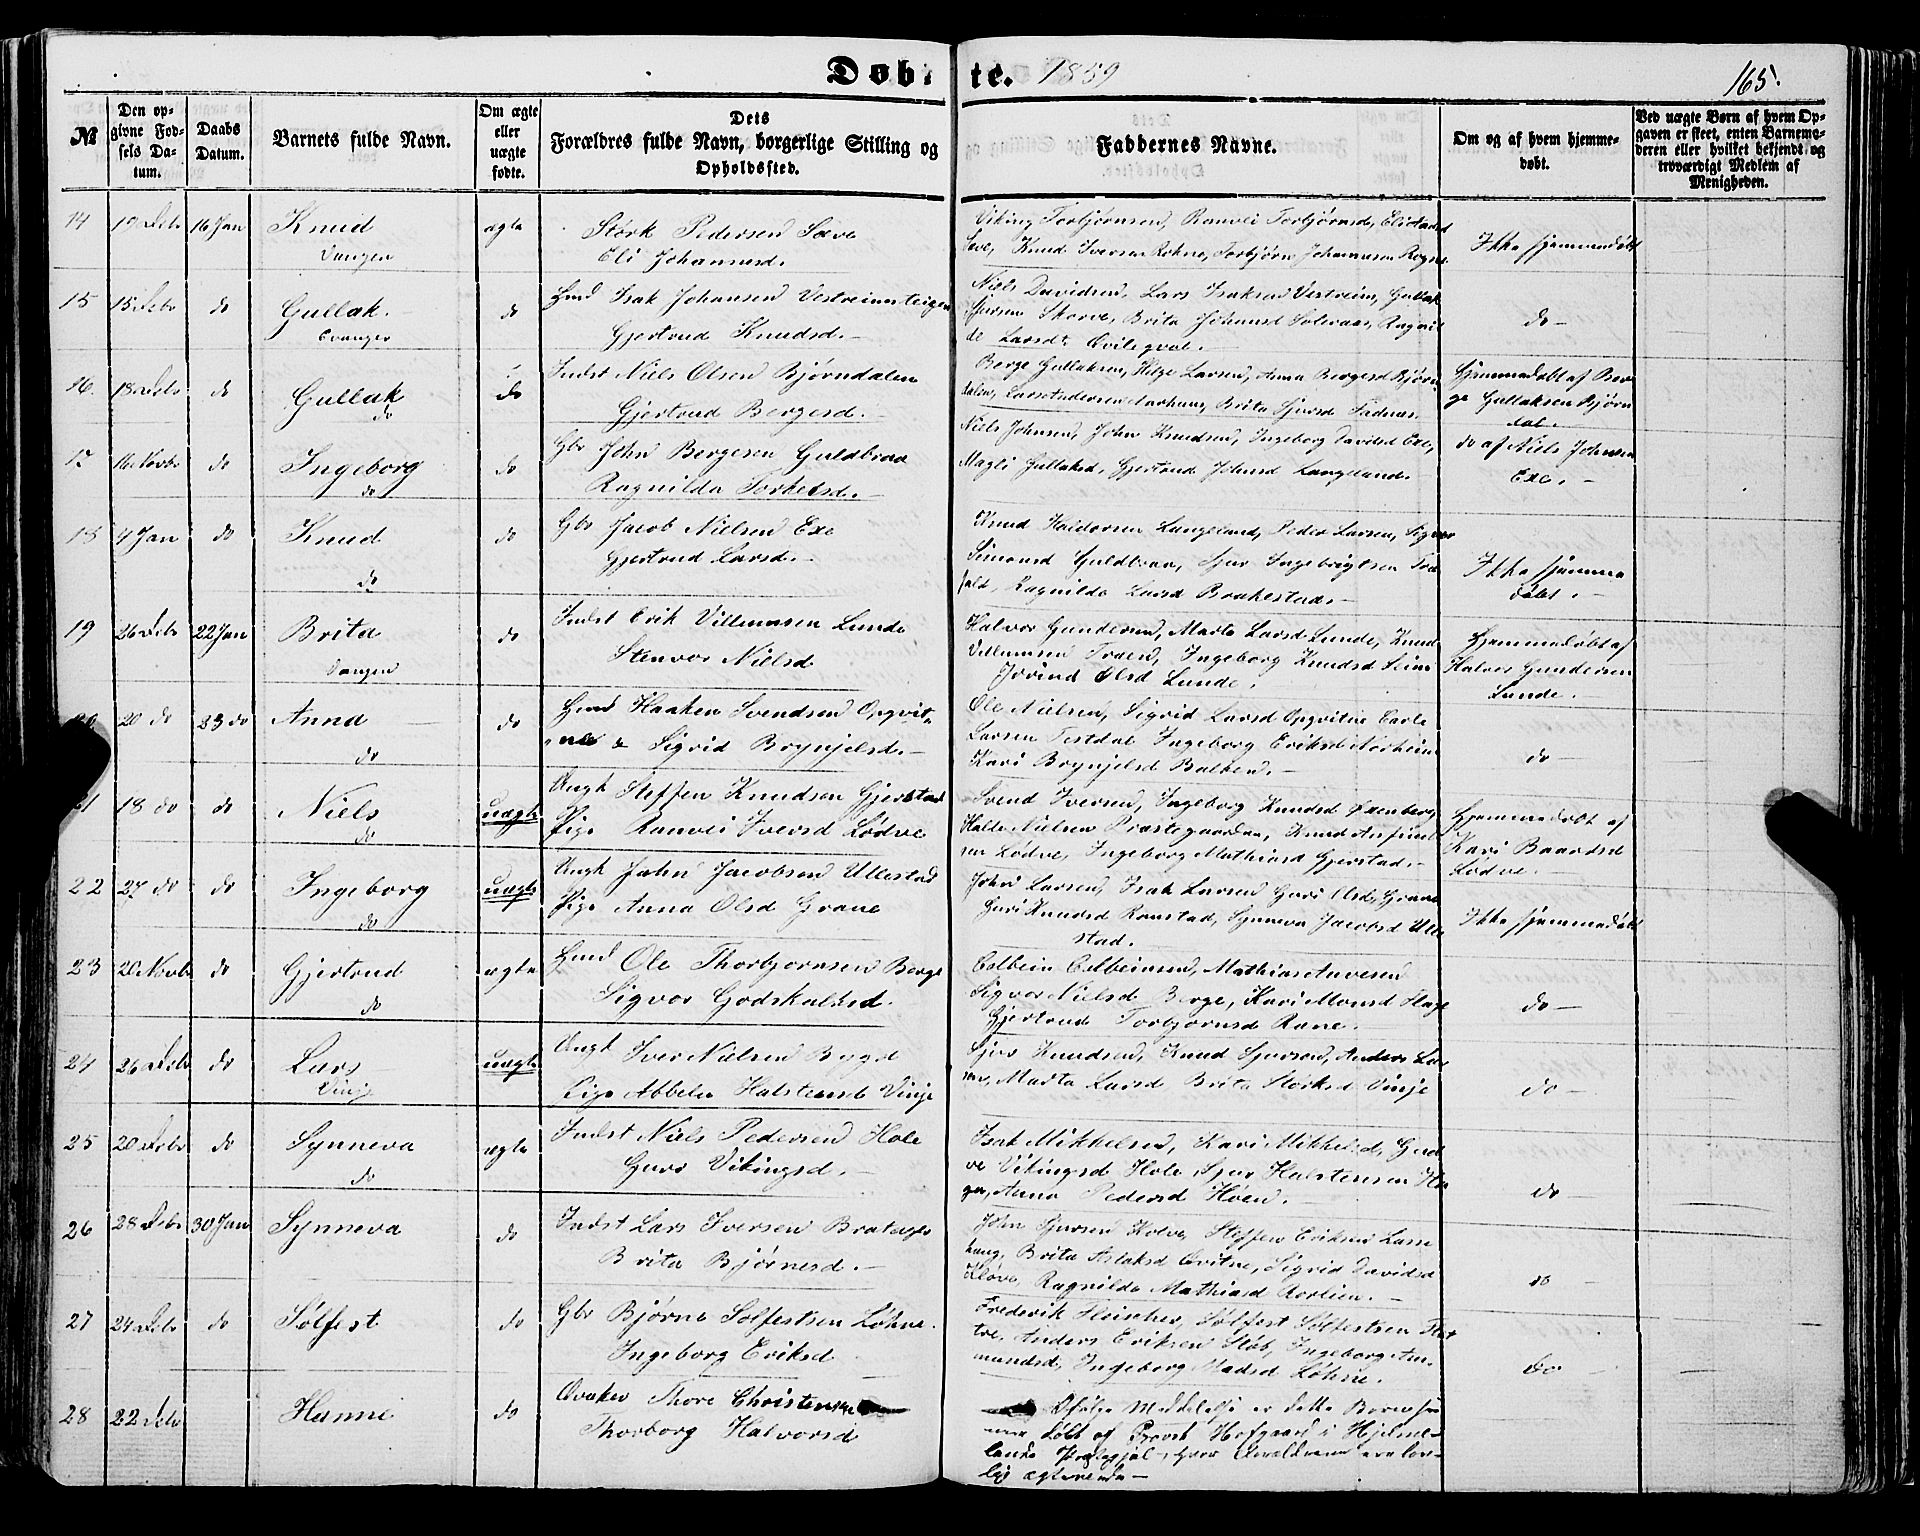 Døbte. 1859
165.
№
Den opgivne Fødsels Datum.
Daabs Datum.
Barnets fulde Navn.
Om ægte eller uægte fødte.
Dets Forældres fulde Navn, borgerlige Stilling og Opholdssted.
Faddernes Navne.
Om og af hvem hjemmedøbt.
Ved uægte Børn af hvem Opgaven er skeet, enten Barnemoderen eller hvilket bekjendt og troværdigt Medlem af Menigheden.
14 19 Debr 16 Jan Knud ægte Størk Pedersen Sæve
Vangen Eli Johannesd.
Viking Torbjørnsen, Ranvei Torbjørnsd,
Sæve, Knud Iversen Rokne, Torbjørn Johannesen Rogne
Ikke hjemmedøbt
15 15 Debr do Gullak do Hmd Isak Johansen Vestreimsteigen
Evanger Gjertrud Knudsd.
Niels Davidsen, Lars Isaksen Vestreim, Gullak
Sjursen Skorve, Brita Johansd
de Larsd
do
16. 18 Debr do Gullak do Indst Niels Olsen Bjørndalen
do Gjertrud Bergesd.
Berge Gullaksen, Helge Larsen, Anna Bergesd Bjørn
dalen, Lars Andersen Aarhuus, Brita Sjursd Fadnæs
Hjemmedøbt af Ber
ge Gullaksen Bjørn
dal.
17 16 Novbr do Ingeborg do Gbr John Bergesen Guldbraa
do Ragnilda Torkelsd.
Niels Johnsen, John Knudsen, Ingeborg Davidsd Exe,
Magli Gullaksd, Gjertrud Johnsd Langeland.
do af Niels Johnsen
Exe.
18 4 Jan do Knud do Gbr Jacob Nielsen Exe
do Gjertrud Larsd.
Knud Haldorsen Langeland, Peder Larsen, Sigvor
Simonsd Guldbraa, Sjur Ingebrigtsen
Ragnilda Larsd Brakestad.
Ikke hjemme
døbt.
19 26 Debr 22 Jan Brita do Indst Erik Villumsen Lunde
Vangen Stenvor Nielsd
Halvor Gundersen, Marta Larsd Lunde, Knud
Villumsen Traen, Ingeborg Knudsd Seim
Jorind Olsd Lunde.
Hjemmedøbt af
Halvor Gundersen
Lunde.
20 20 do 23 do Anna do Hmd Haaken Svendsen Opqvit
do ne & Sigrid Brynjelsd.
Ole Nielsen, Sigrid Larsd Opqvitne
Larsen Ingeborg Eriksd Nørheim
Kari Brynjelsd Balken.
do
21 18 do do Niels uægte Ungk Steffen Knudsen Gjerstad
do Pige Ranvei Iversd Lødve
Svend Iversen, Ingeborg Knudsd
Halle Nielsen Præstegaarden, Knud Anfind
sen Lødve, Ingeborg Mathiasd Gjerstad.
Hjemmedøbt af
Kari Baardsd
Lødve.
22 27 do do Ingeborg uægte Ungk John Jacobsen Ullestad
do Pige Anna Olsd Grane
John Larsen, Isak Larsen, Guri Olsd, Grane
Guri Knudsd Ronstad, Synneva Jacobsd Ulle
stad.
Ikke hjemmedøbt
23 20 Novbr do Gjertrud ægte Hmd Ole Thorbjørnsen Berge
do Sigvor Godskalksd.
Colbein Colbeinsen, Mathias
Sigvor Nielsd Berge, Kari Monsd
Gjertrud Torbjørnsd Rene.
do
24 26 Debr do Lars uægte Ungk Iver Nielsen Bygd
Vinje Pige Abbela Halstensd Vinje
Sjur Knudsen, Knud Sjursen, Anders Lar
sen, Marta Larsd Brita Størksd Vinje
do
25 20 Debr do Synneva ægte Indst Niels Pedersen Hole
do Guro Vikingsd.
Isak Mikkelsen, Kari Mikkelsd, Gud
ve Vikingsd Hole, Sjur Halstensen
Anna Pedersd Hoen.
do
26 28 Debr 30 Jan Synneva do Indst Lars Iversen
Brita Bjørnesd.
John Sjursen Kolve, Steffen Eriksen
Brita Aslaksd Qvitne, Sigrid Davidsd
Kløve, Ragnilda Mathiasd Rørlien.
do
27 24 Debr do Sølfest do Gbr Bjørne Sølfestsen Løhne.
Ingeborg Eriksd
Frederik Fleischer, Sølfest Sølfestsen
Anders Eriksen Ingeborg Am
mundsd, Ingeborg Madsd Løhne.
do
28 22 Debr Hanne do Qvæker Thore Christensen
Thorborg Halvorsd
Ifølge Meddelelse er dette Barn hje
mme døbt af Provst Hofgaard i Hjelme
lands Præstegjel, hvor Forældrene ere lov
lig ægteviede